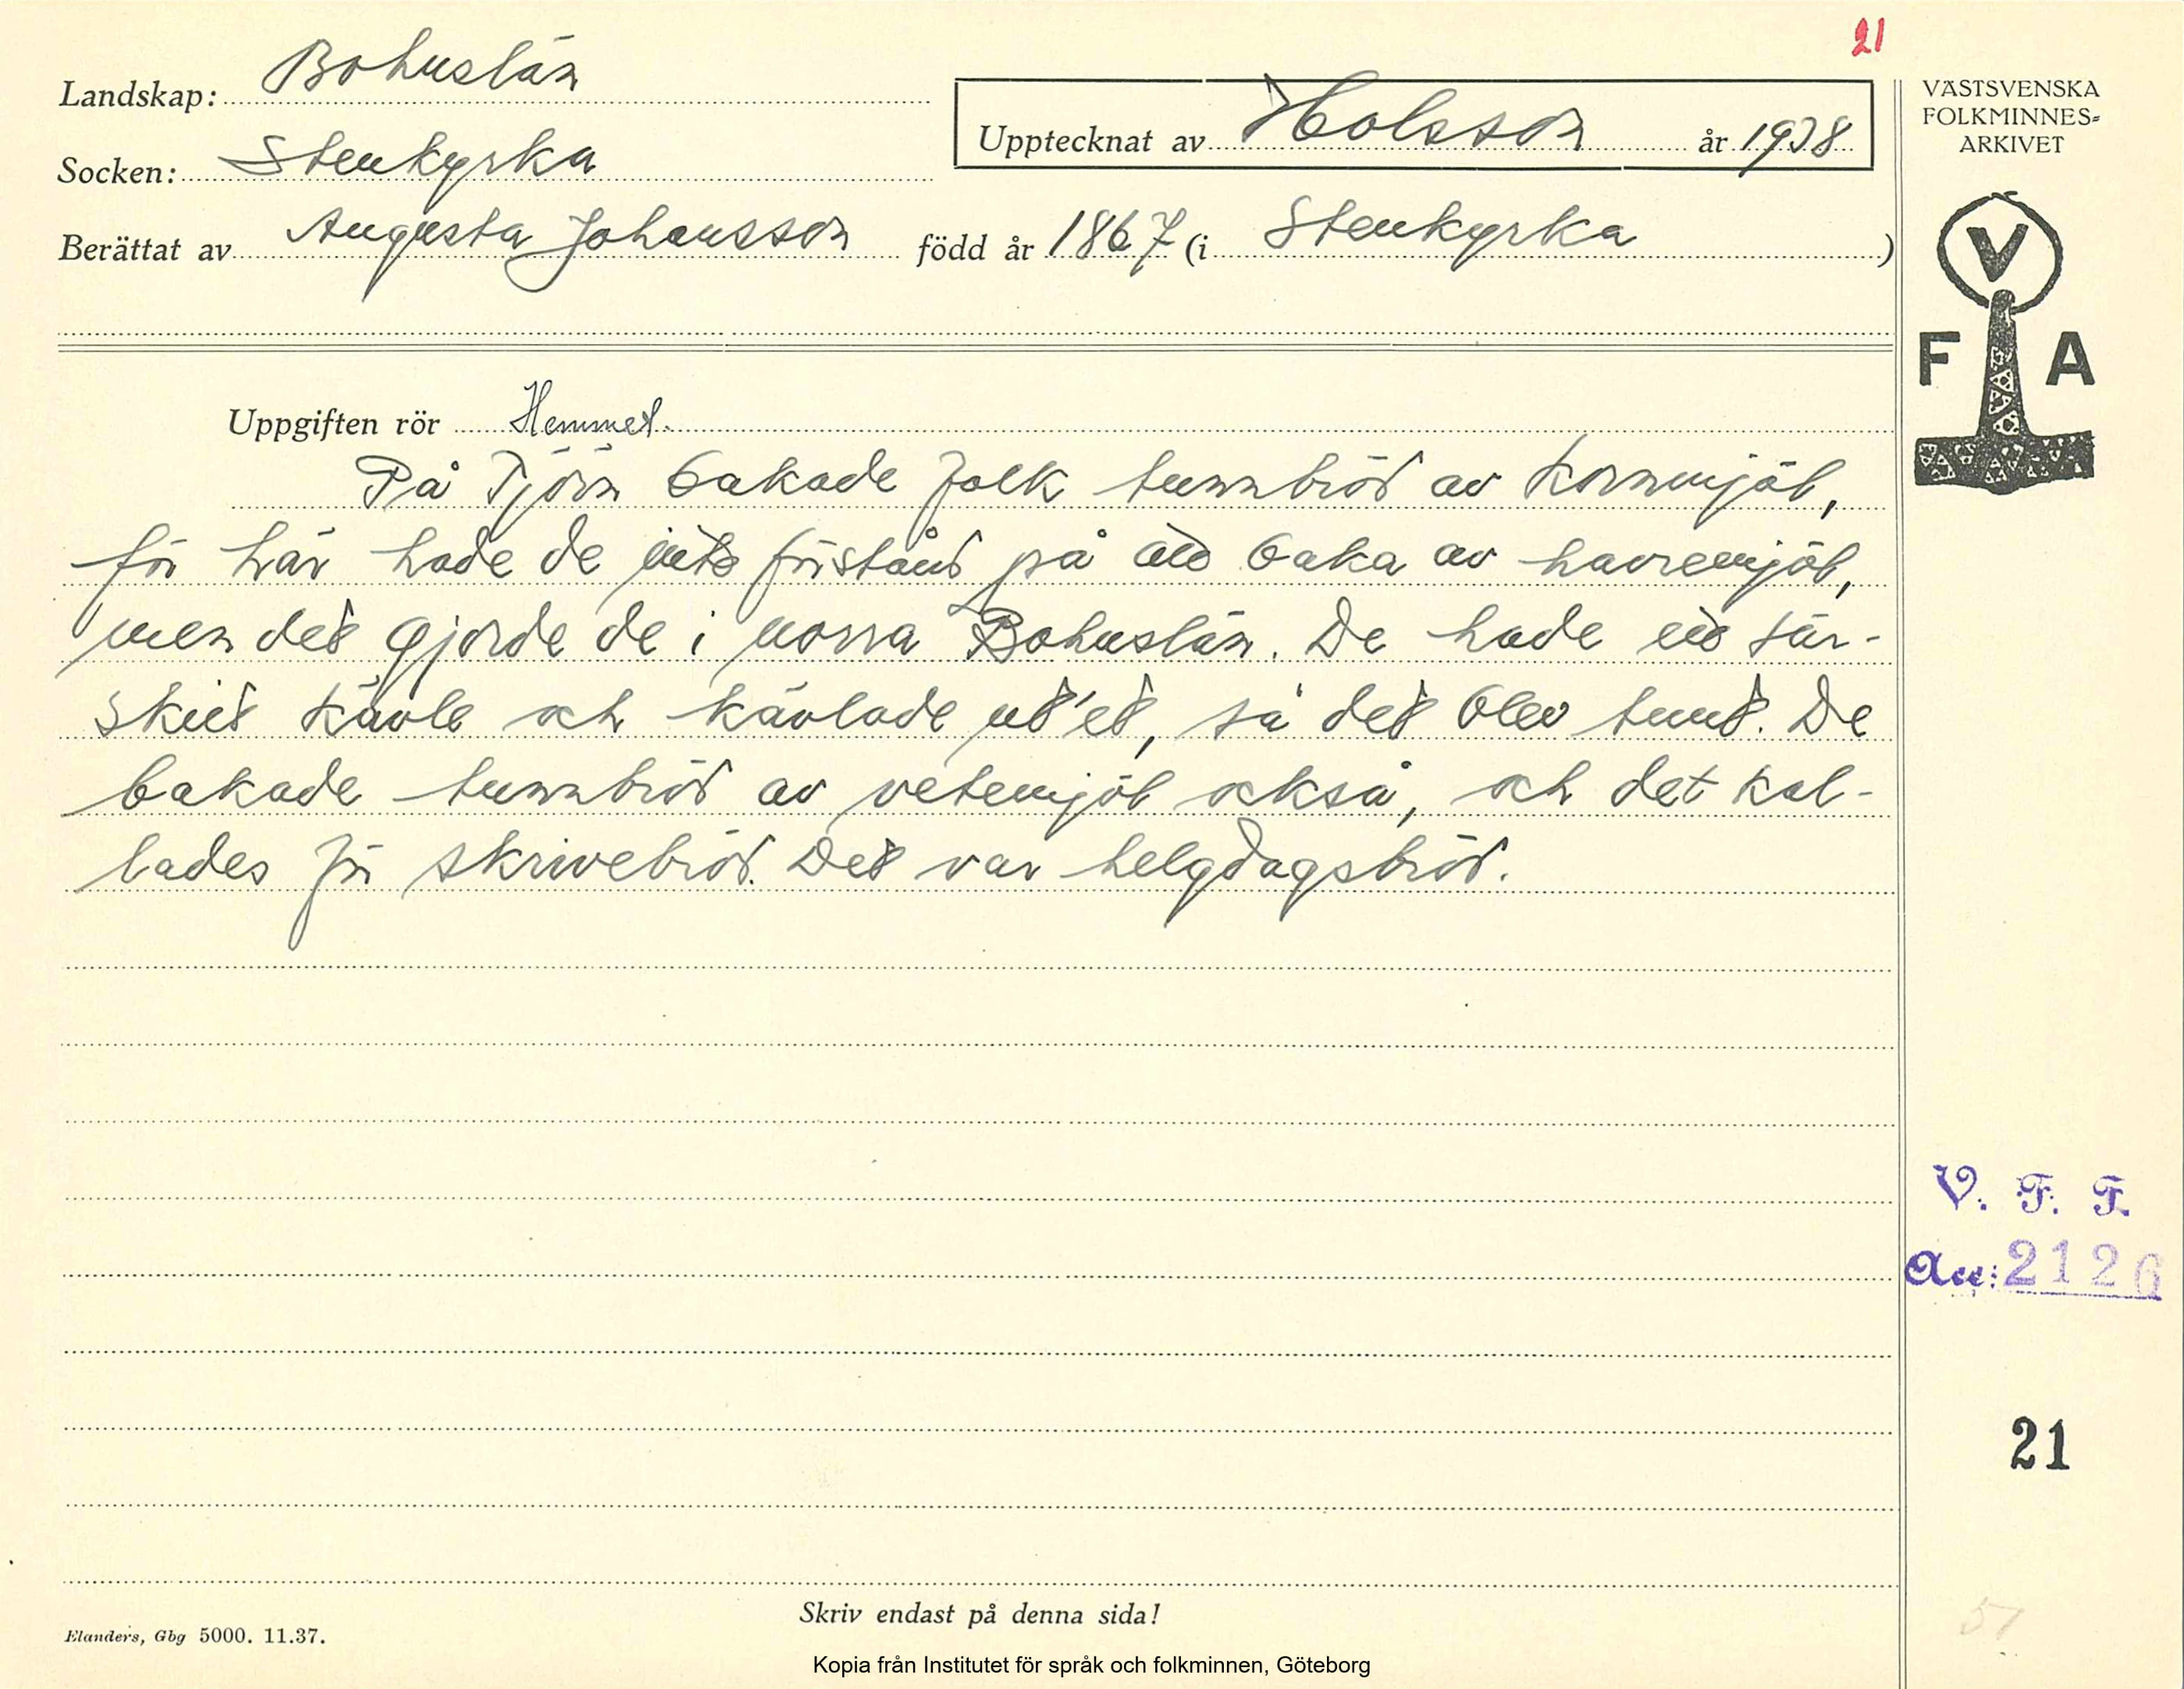 21
Landskap: Bohuslän
Socken: Stenkyrka
Upptecknat av Holsson år 1938
Berättat av Augusta Johansson född år 1867 (i Stenkyrka)
VÄSTSVENSKA
FOLKMINNES-
ARKIVET
V
F A
Uppgiften rör Hemmet.
På Tjörn bakade folk tunnbröd av kornmjöl,
för här hade de inte förstånd på att baka av havremjöl,
men det gjorde de i norra Bohuslän. De hade ett sär-
skilt kavle och kavlade ut'et, så det blev tunt. De
bakade tunnbröd av vetemjöl också, och det kal-
lades för skrivebröd. Det var helgdagsbröd.
V. F. F.
Acc: 2126
21
51
Skriv endast på denna sida!
Elanders, Gbg 5000. 11.37.
Kopia från Institutet för språk och folkminnen, Göteborg